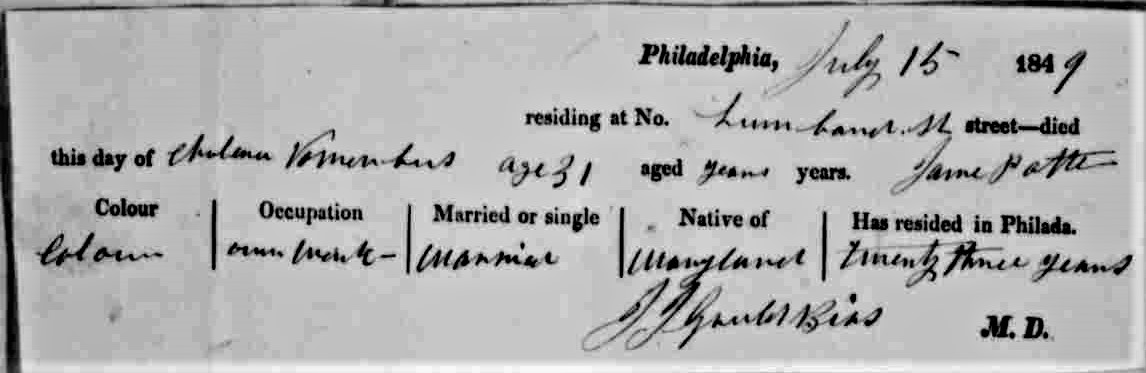 Philadelphia, July 15 1849
residing at No. Lumbard St street—died
this day of Cholera age 31 aged years years. Jame Potte
Colour Occupation Married or single Native of Has resided in Philada.
Colour own work Married Maryland Twenty three years
J J Gould Bias M. D.